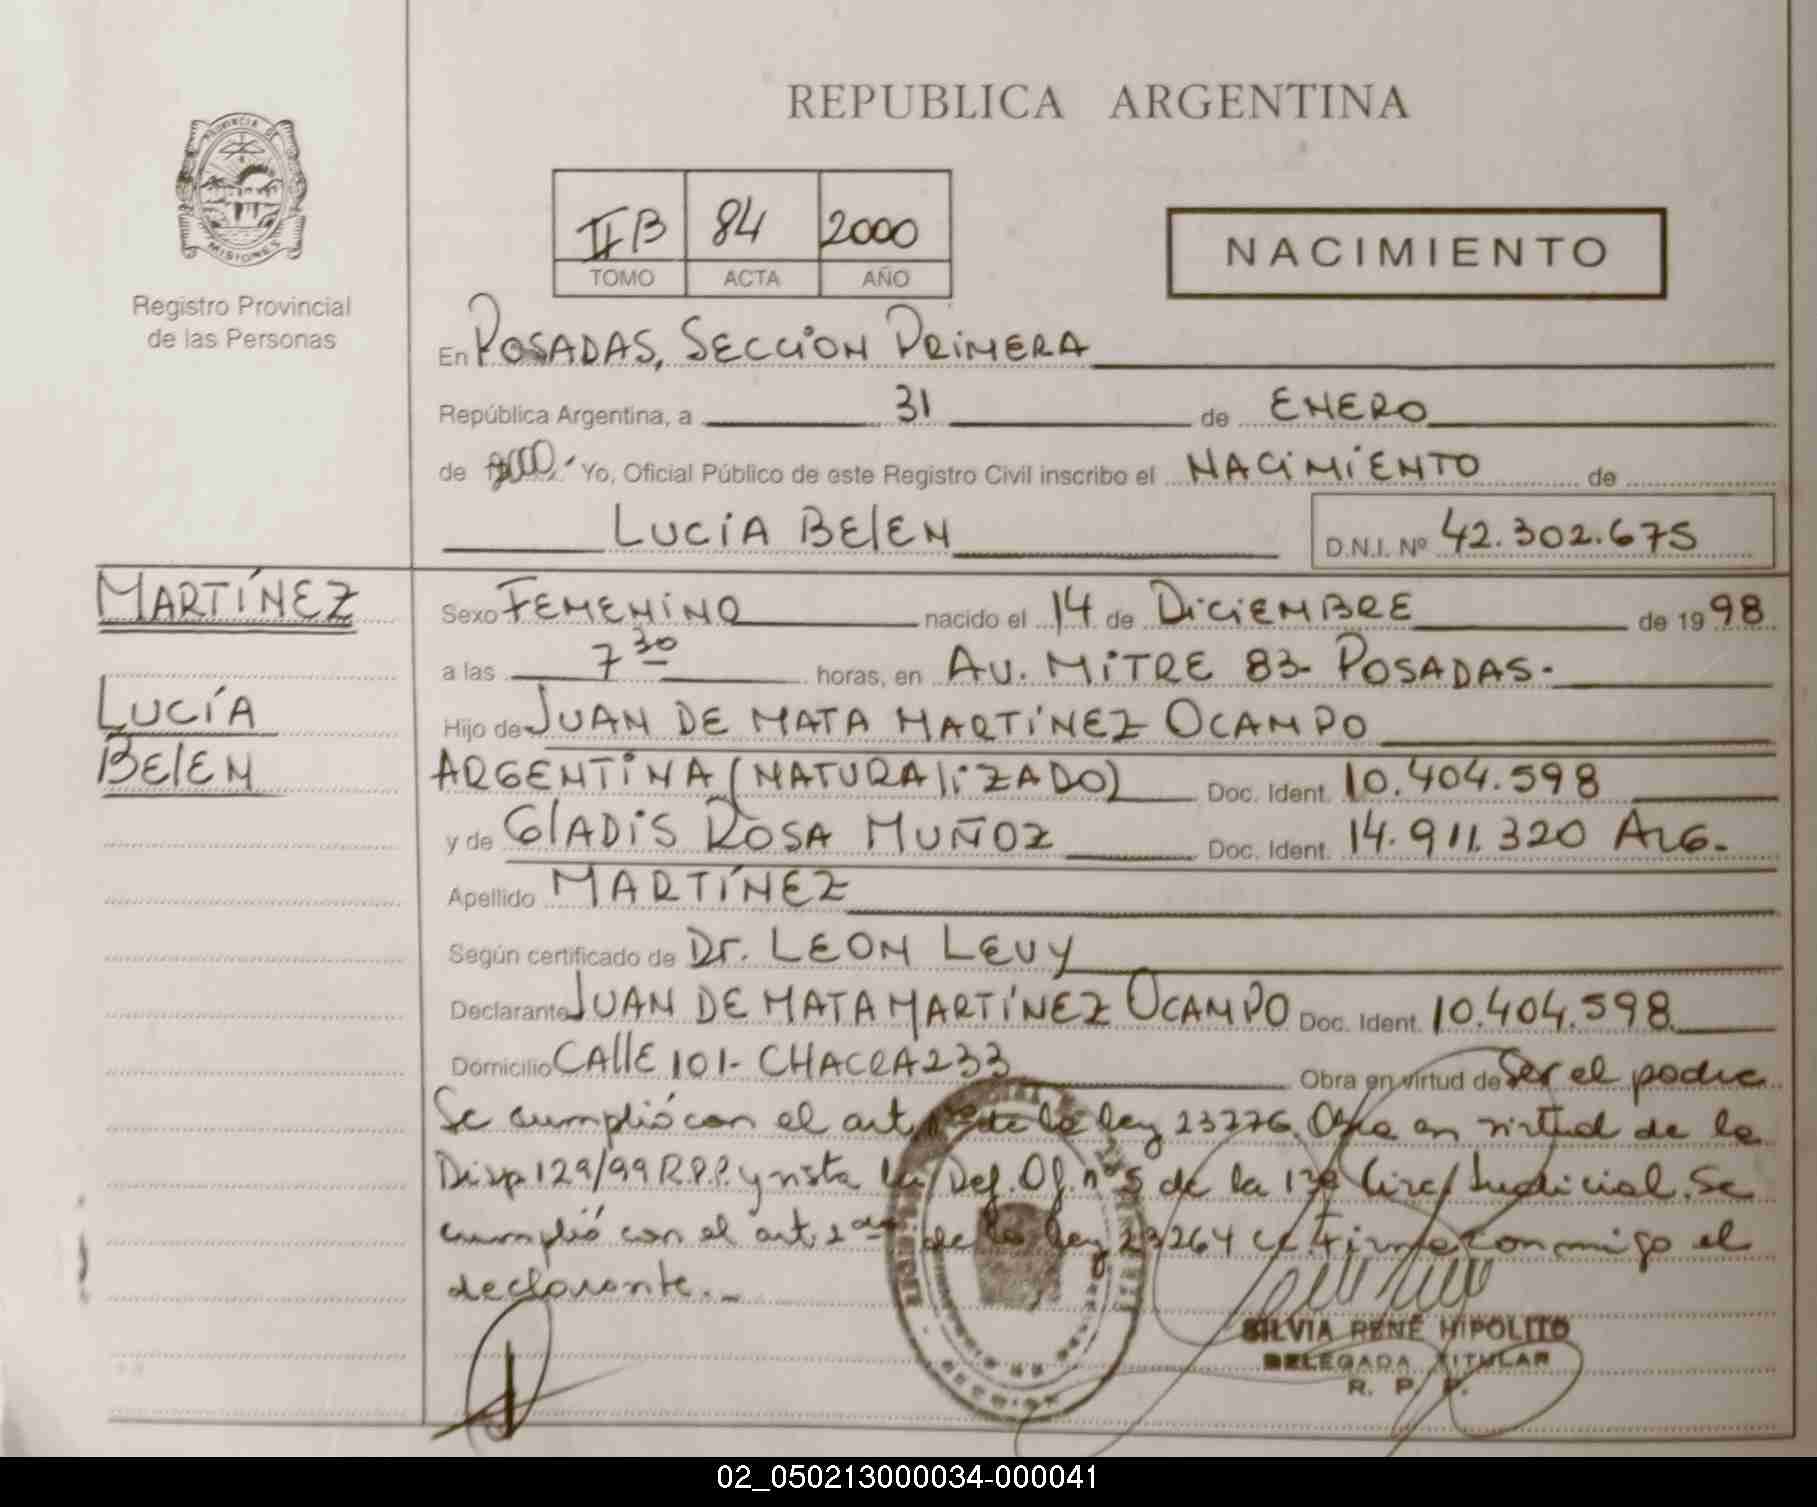 REPUBLICA ARGENTINA
PROVINCIA DE
MISIONES
Registro Provincial
de las Personas
IIB 84 2000
TOMO ACTA AÑO
NACIMIENTO
En POSADAS, SECCION PRIMERA
República Argentina, a 31 de ENERO
de 2000. Yo, Oficial Público de este Registro Civil inscribo el NACIMIENTO de
LUCÍA BELEN D.N.I. Nº 42.302.675
MARTÍNEZ
LUCÍA
BELEN
Sexo FEMENINO nacido el 14 de DICIEMBRE de 1998
a las 7 30 horas, en AV. MITRE 83- POSADAS.
Hijo de JUAN DE MATA MARTÍNEZ OCAMPO
ARGENTINA (NATURALIZADO) Doc. Ident. 10.404.598
y de GLADIS ROSA MUÑOZ Doc. Ident. 14.911.320 ARG.
Apellido MARTÍNEZ
Según certificado de Dr. LEON LEVY
Declarante JUAN DE MATA MARTÍNEZ OCAMPO Doc. Ident. 10.404.598
Domicilio CALLE 101- CHACRA 233 Obra en virtud de Ser el padre
Se cumplió con el art de la ley 23776. Obra en virtud de la
Disp 129/99 R.P.P. y vista la Def. Of. nº 5 de la 1ra Circ/ Judicial. Se
cumplió con el art. 2 de la ley 23264 Firma conmigo el
declarante.-
SILVIA RENÉ HIPOLITO
DELEGADA TITULAR
R. P. P.
02_050213000034-000041